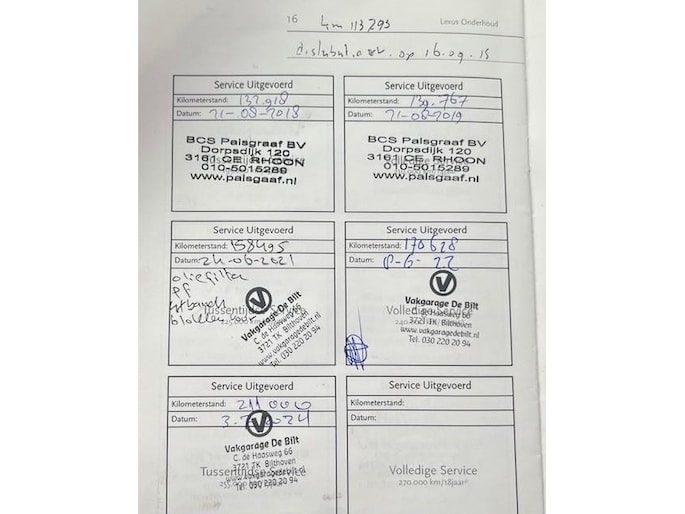 16 km 113295 Lexus Onderhoud
op 16.09.15
Service Uitgevoerd
Kilometerstand: 132.918
Datum: 21-08-2018
BCS Palsgraaf BV
Dorpsdijk 120
3161 CE RHOON
010-5015289
www.palsgaaf.nl
Service Uitgevoerd
Kilometerstand: 139.767
Datum: 21-08-2019
BCS Palsgraaf BV
Dorpsdijk 120
3161 CE RHOON
010-5015289
www.palsgaaf.nl
Service Uitgevoerd
Kilometerstand: 158495
Datum: 24-06-2021
oliefilter
Tussentijdse Service
Vakgarage De Bilt
C. de Haasweg 66
3721 TK Bilthoven
www.vakgaragedebilt.nl
Tel. 030 220 20 94
Service Uitgevoerd
Kilometerstand: 170628
Datum: 8-6-22
Vakgarage De Bilt
C. de Haasweg 66
Volledige Service
3721 TK Bilthoven
www.vakgaragedebilt.nl
Tel. 030 220 20 94
Service Uitgevoerd
Kilometerstand: 211000
Datum: 2024
Vakgarage De Bilt
C. de Haasweg 66
3721 TK Bilthoven
Tussentijdse Service
www.vakgaragedebilt.nl
Tel. 030 220 20 94
Service Uitgevoerd
Kilometerstand:
Datum:
Volledige Service
270.000 km/18jaar